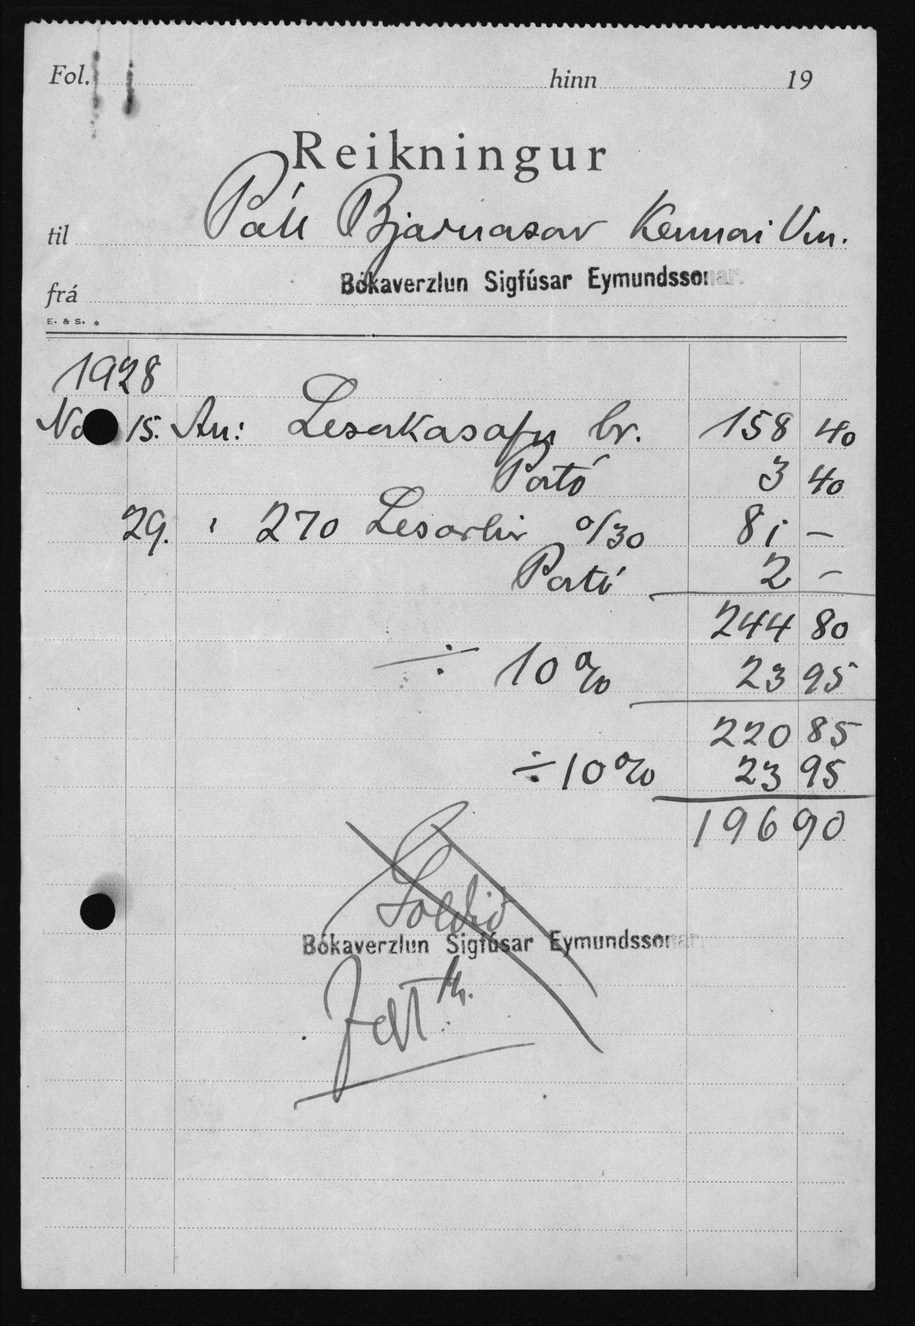 Fol. hinn 19
Reikningur
til Páll Bjarnason Kennari Vm.
frá Bókaverzlun Sigfúsar Eymundssonar.
E. & S.
1928
15. An: Lesarkasafn br. 158 40
Portó 3 40
29. " 270 Lesarkir 0/30 81 –
Portó 2 –
244 80
÷ 10% 23 95
220 85
÷ 10% 23 95
196 90
Bókaverzlun Sigfúsar Eymundssonar